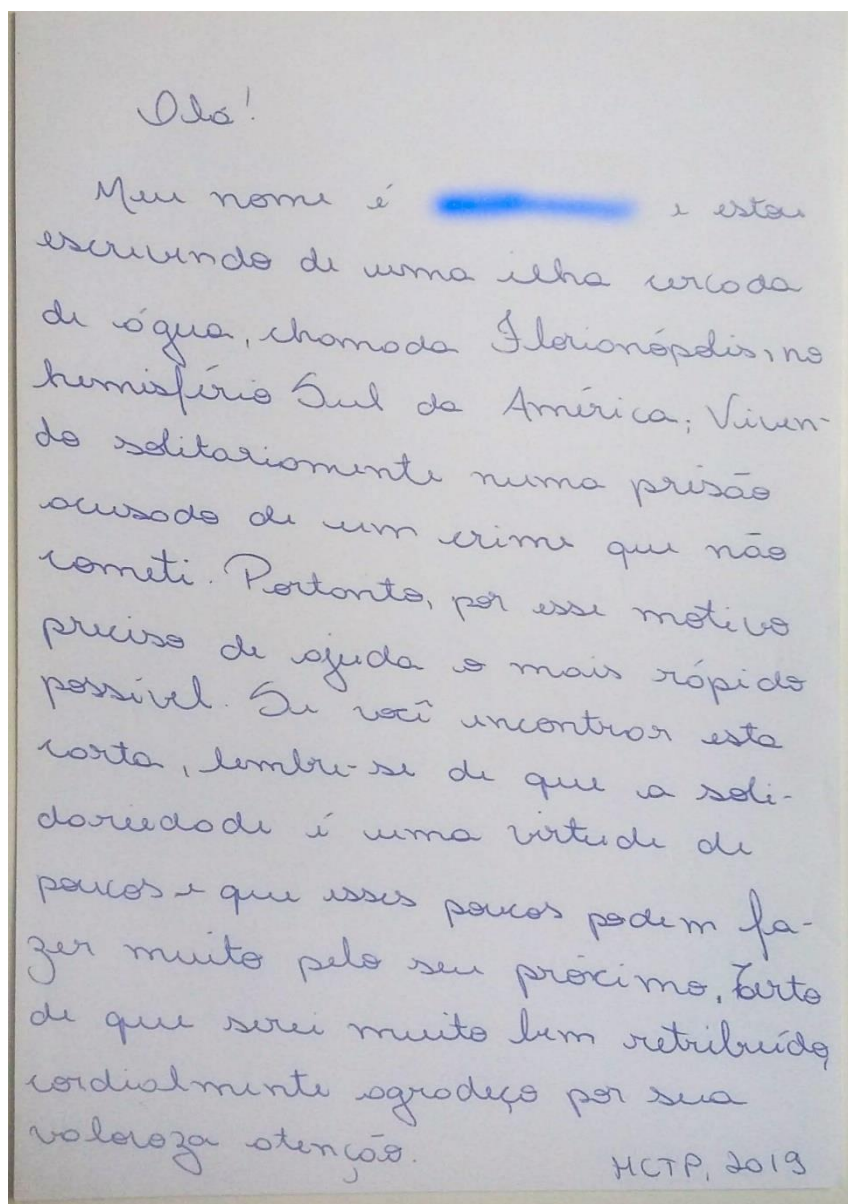 Olá!
Meu nome é e estou
escrevendo de uma ilha cercada
de água, chamada Florianópolis, no
hemisfério Sul da América; Viven-
do solitariamente numa prisão
acusado de um crime que não
cometi. Portanto, por esse motivo
preciso de ajuda o mais rápido
possível. Se você encontrar esta
carta, lembre-se de que a soli-
dariedade é uma virtude de
poucos e que esses poucos podem fa-
zer muito pelo seu próximo. Certo
de que serei muito bem retribuído,
cordialmente agradeço por sua
valoroza atenção.
HCTP, 2019